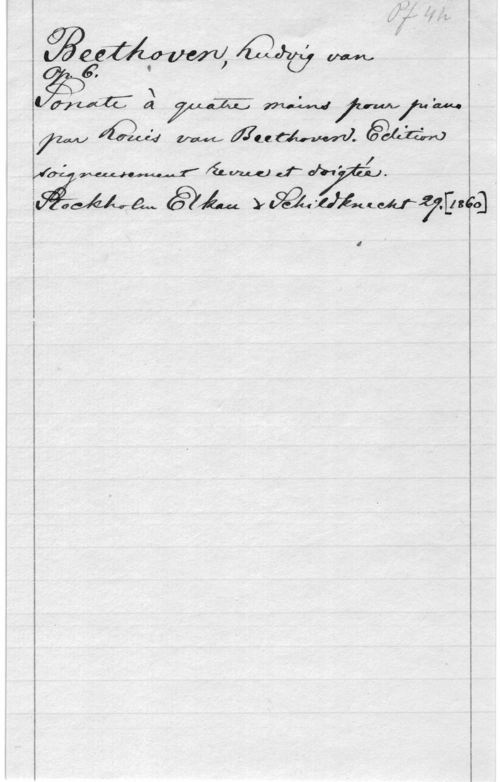 Pf 4h
Beethoven, Ludvig van
Op. 6.
Sonate à quatre mains pour piano
par Louis van Beethoven. Édition
soigneusement revue et doigtée.
Stockholm Elkan & Schildknecht 29. [1860]